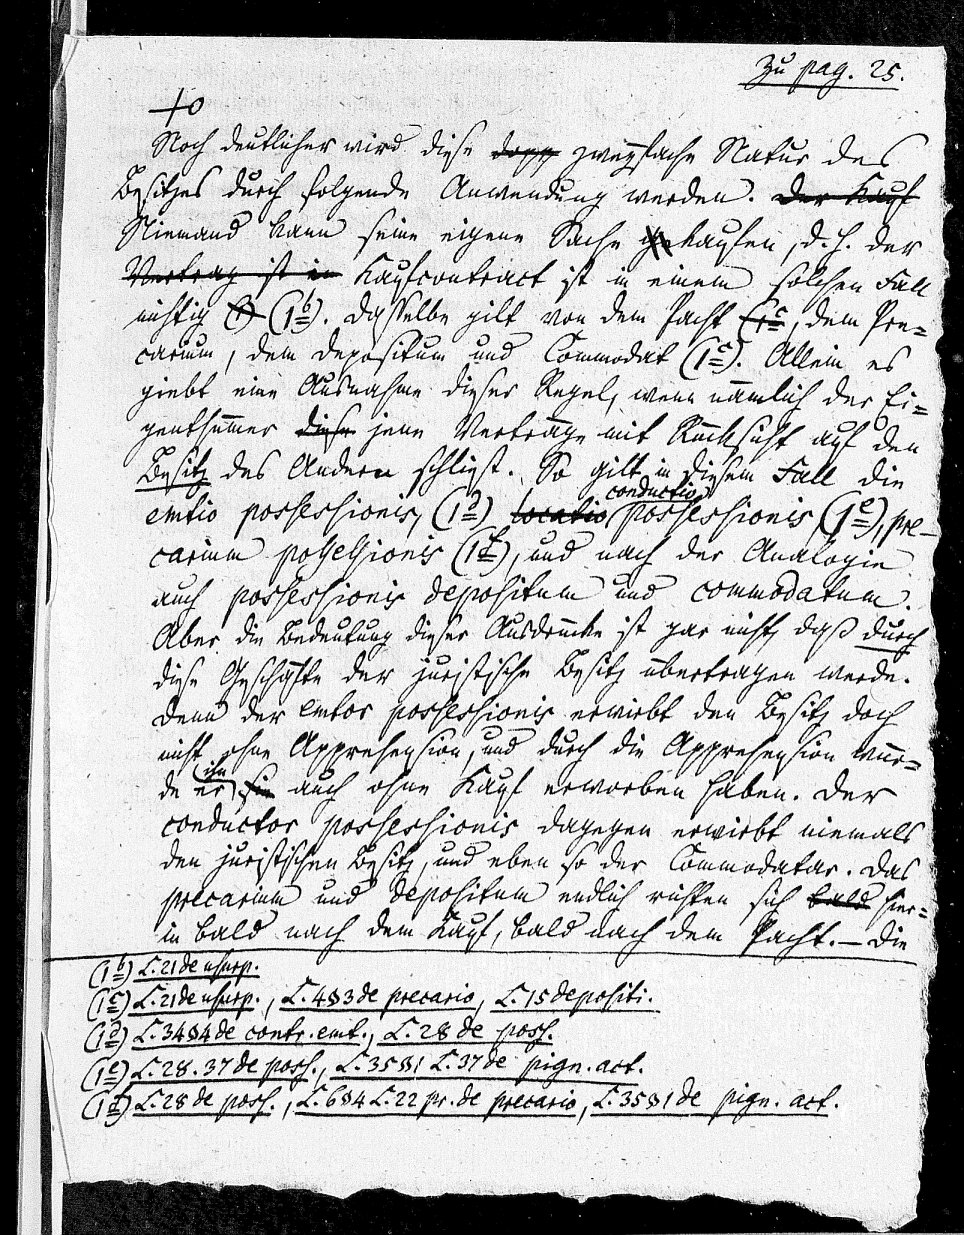 Zu pag. 25.
+o
Noch deutlicher wird diese dopp zweyfache Natur des
Besitzes durch folgende Anwendung werden. Der Kauf
Niemand kann seine eigene Sache kaufen, d. h. der
Vertrag ist in Kaufcontract ist in einem solchen Fall
nichtig (1b). Dasselbe gilt von dem Pacht, dem Pre=
carium, dem depositum und Commodat (1c). Allein es
giebt eine Ausnahme dieser Regel, wenn nämlich der Ei=
genthümer diese jene Verträge mit Rücksicht auf den
Besitz des Andern schliest. So gilt in diesem Fall die
emtio possessionis, (1d) locatio conductio possessionis (1e), pre-
carium possessionis (1f), und nach der Analogie
auch possessionis depositum und commodatum.
Aber die Bedeutung dieser Ausdrücke ist gar nicht, daß durch
diese Geschäfte der juristische Besitz übertragen werde.
Denn der emtor possessionis erwirbt den Besitz doch
nicht ohne Apprehension, und durch die Apprehension wür=
de er ihn sie auch ohne Kauf erworben haben. Der
conductor possessionis dagegen erwirbt niemals
den juristischen Besitz, und eben so der Commodatar. Das
precarium und depositum endlich richten sich bald hier=
in bald nach dem Kauf, bald nach dem Pacht. — Die
(1b) L. 21 de usurp.
(1c) L. 21 de usurp., L. 4 § 3 de precario, L. 15 depositi.
(1d) L. 34 § 4 de contr. emt., L. 28 de poss.
(1e) L. 28. 37 de poss., L. 35 § 1 L. 37 de pign. act.
(1f) L. 28 de poss., L. 6 § 4 L. 22 pr. de precario, L. 35 § 1 de pign. act.